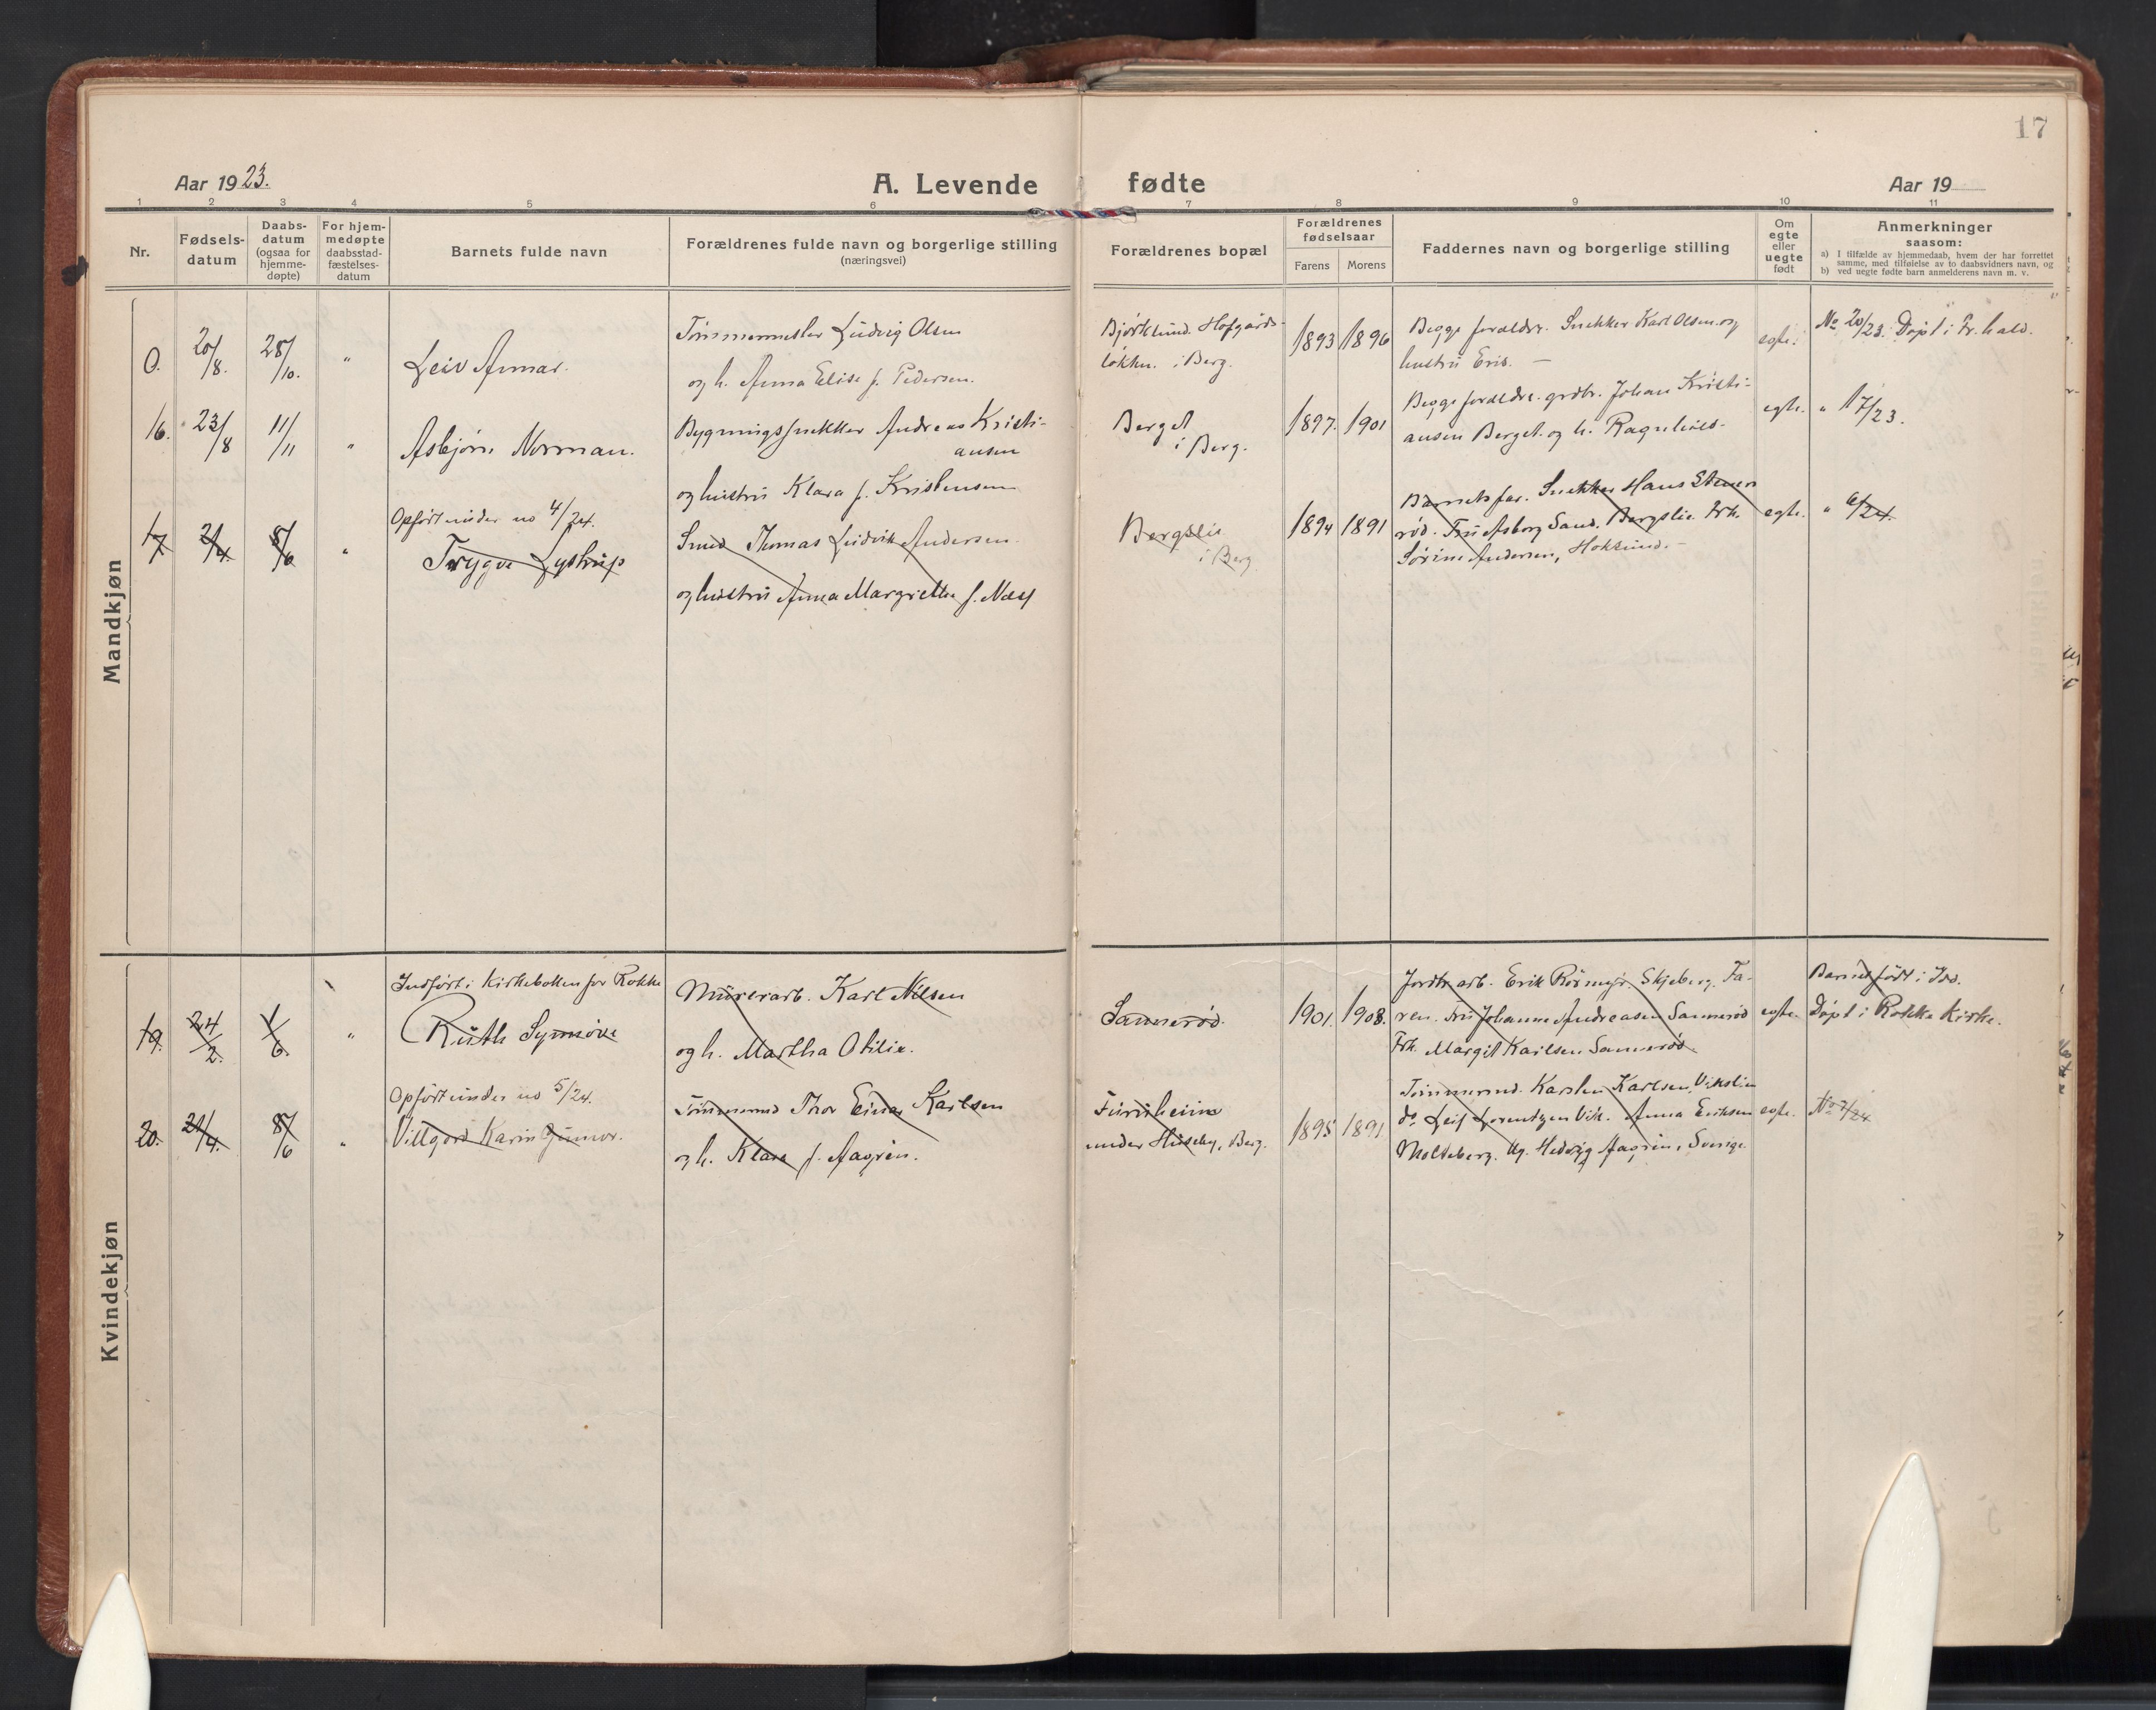 17
Aar 1923.
A. Levende fødte
Aar 19
1 2 3 4 5 6 7 8 9 10 11
Nr.
Fødsels-
datum
Daabs-
datum
(ogsaa for
hjemme-
døpte)
For hjem-
medøpte
daabsstad-
fæstelses-
datum
Barnets fulde navn
Forældrenes fulde navn og borgerlige stilling
(næringsvei)
Forældrenes bopæl
Forældrenes
fødselsaar
Farens Morens
Faddernes navn og borgerlige stilling
Om
egte
eller
uegte
født
Anmerkninger
saasom:
a) I tilfælde av hjemmedaab, hvem der har forrettet
samme, med tilføielse av to daabsvidners navn, og
b) ved uegte fødte barn anmelderens navn m. v.
Mandkjøn
0. 20/8. 28/10. "
Leiv Annar.
Tømmermester Ludvig Olsen
og h. Anna Elise f. Pedersen.
Bjørklund. Hofgårds-
løkken. i Berg.
1893 1896
Begge foraldre. Snekker Karl Olsen og
hustru
egte.
No 20/23. Døpt i Fr.hald.
16. 23/8 11/11 "
Asbjørn Norman.
Bygningssnekker Andreas Kristi-
ansen
og hustru Klara f. Kristensen
Berget
i Berg.
1897. 1901
Begge foraldre. grdbr. Johan Kristi-
ansen Berget. og h. Ragnhild.
egte. " 17/23.
Opført under no 4/24.
17 2/4. 8/6 "
Trygve Lystrup
Smed Thomas Ludvik Andersen.
og hustru Anna Margrethe f. Næss
Bergslie
i Berg.
1894 1891
Barnets far. Snekker Hans Stener
rød. Fru Asborg Sand. Bergslie. Frk.
Sørine Andersen, Hokksund.
egte. " 6/24.
Kvindekjøn
Indført i Kirkeboken for Rokke
19. 24/2. 1/6. "
Ruth Synnøve
Murerarb. Karl Nilsen
og h. Martha Otilie.
Sannerød.
1901. 1908.
Jordbr.arb. Erik Rørmyr. Skjeberg. Fa-
ren. Fru Johanne Andreasen Sannerød
Frk. Margit Karlsen Sannerød.
egte.
Barnet født i Idd.
Døpt i Rokke Kirke.
Opført under no 5/24.
20. 21/4. 8/6 "
Villgord Karin Gunvor.
Tømmermd Thor Einar Karlsen
og h. Klara f. Aagren.
Furuheim
under Huseby, Berg.
1895 1891.
Tømmermd. Karsten Karlsen. Vikslien
do Leif Lorentzen Vik. Anna Eriksen
Molteberg. Ug. Hedvig Aagren, Sverige
egte.
No 7/24